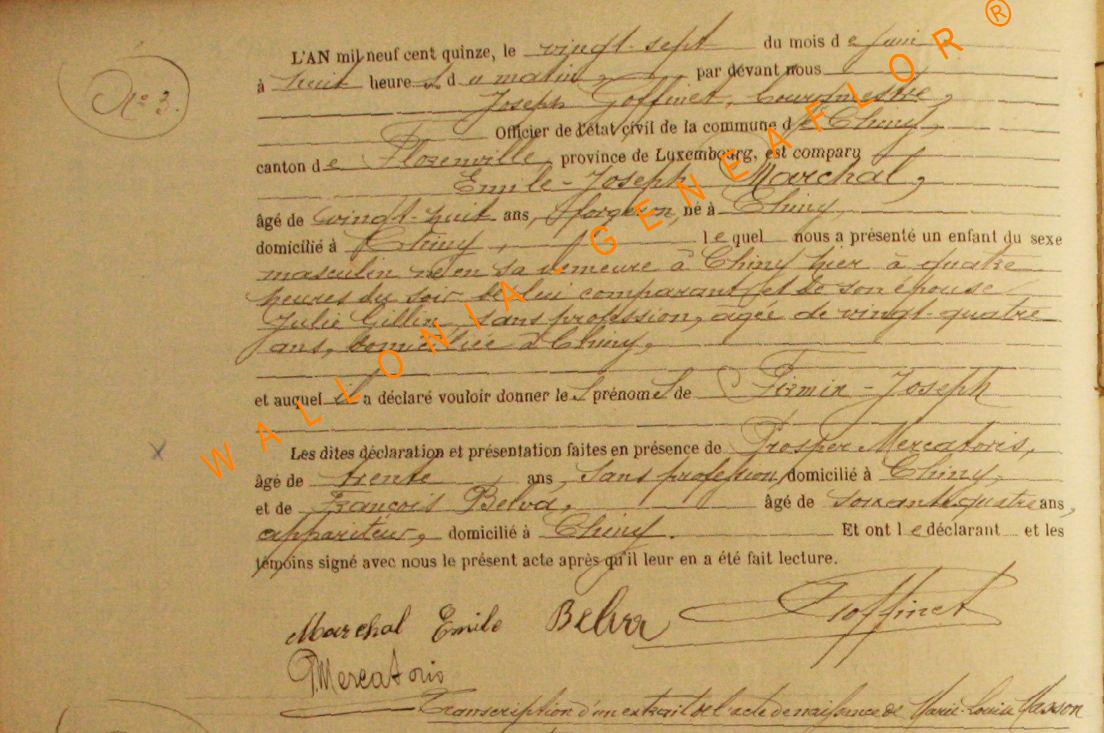 L'AN mil neuf cent quinze, le vingt-sept du mois de juin
N° 3.
à huit heures du matin, par devant nous
Joseph Goffinet, Bourgmestre,
Officier de l'état civil de la commune de Chiny,
canton de Florenville, province de Luxembourg, est comparu
Emile-Joseph Marchal,
âgé de vingt-huit ans, forgeron, né à Chiny,
domicilié à Chiny, lequel nous a présenté un enfant du sexe
masculin né en sa demeure à Chiny hier à quatre
heures du soir de lui comparant et de son épouse
Julie Gillin, sans profession, agée de vingt-quatre
ans, domiciliée à Chiny,
et auquel il a déclaré vouloir donner les prénoms de Firmin-Joseph
Les dites déclaration et présentation faites en présence de Prosper Mercatoris,
âgé de trente ans, sans profession, domicilié à Chiny,
et de François Belva, âgé de soixante-quatre ans,
appariteur, domicilié à Chiny. Et ont le déclarant et les
témoins signé avec nous le présent acte après qu'il leur en a été fait lecture.
Marchal Emile Belva Goffinet
P. Mercatoris
Transcription d'un extrait de l'acte de naissance de Marie-Louise Masson
WALLONIA - GENEAFLOR ®